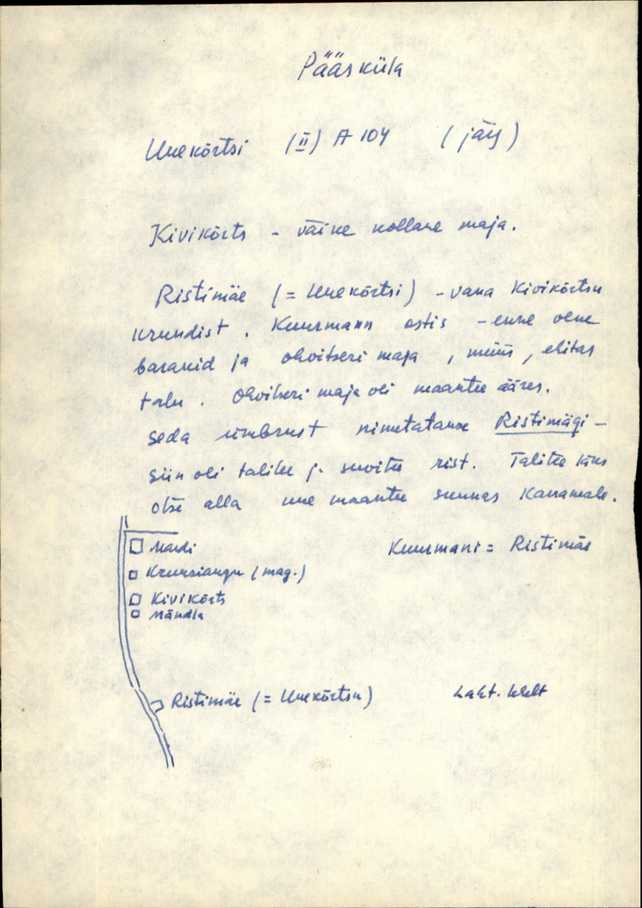 Pääsküla
Uuekõrtsi (II) A 104 (järg)
Kivikõrts - väike kollane maja.
Ristimäe (= Uuekõrtsi) - vana Kivikõrtsu
krundist. Kuurmann ostis - enne vene
barakid ja ohvitseri maja, müüs, ehitas
talu. Ohvitseri maja oli maantee ääres.
Seda ümbrust nimetatakse Ristimägi -
siin oli talitee ja suvitee rist. Talitee läks
otse alla uue maantee suunas Kanamale.
Mardi
Kuurmani = Ristimäe
(mag.)
Kivikõrts
Mändla
Ristimäe (= Uuekõrtsu)